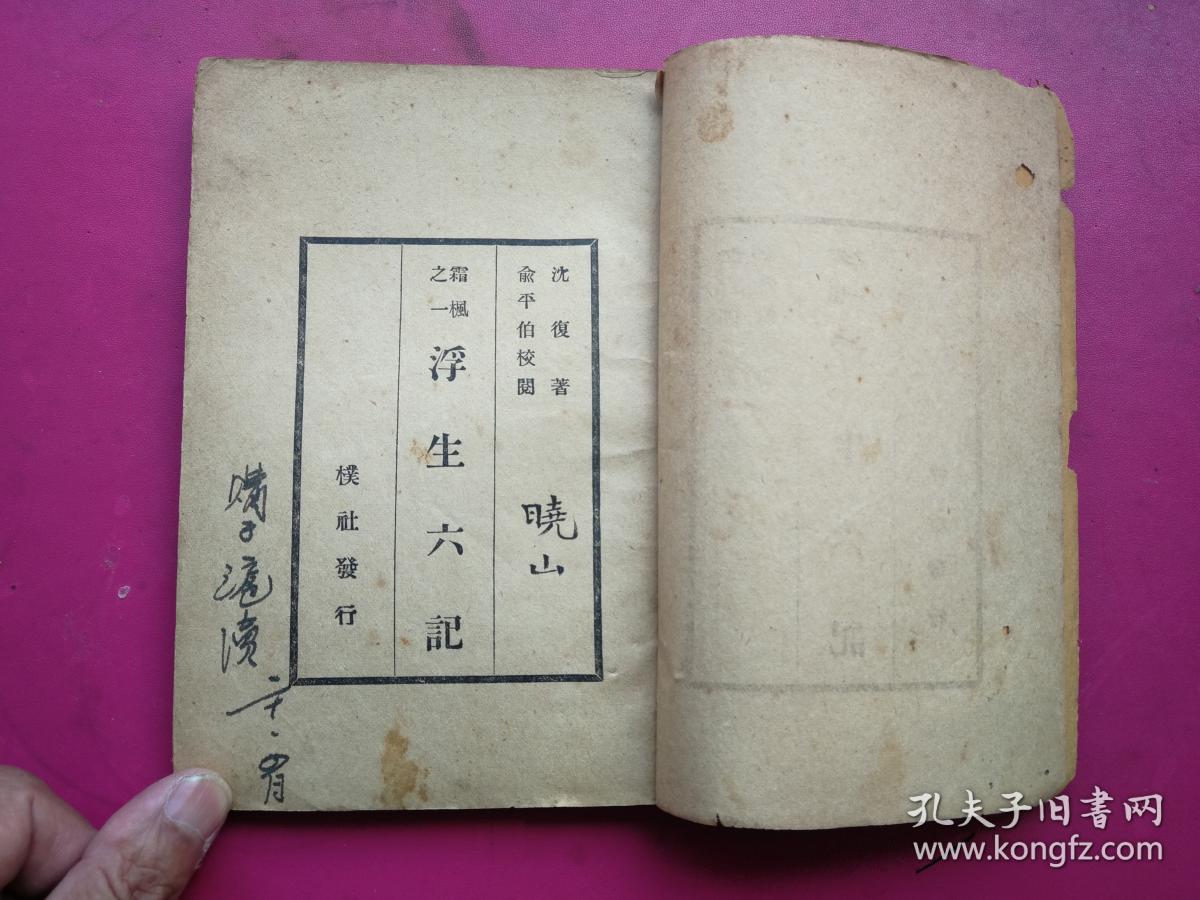 沈復著
俞平伯校閱
曉山
霜楓
之一
浮生六記
樸社發行
購于滬瀆
孔夫子旧书网
www.kongfz.com